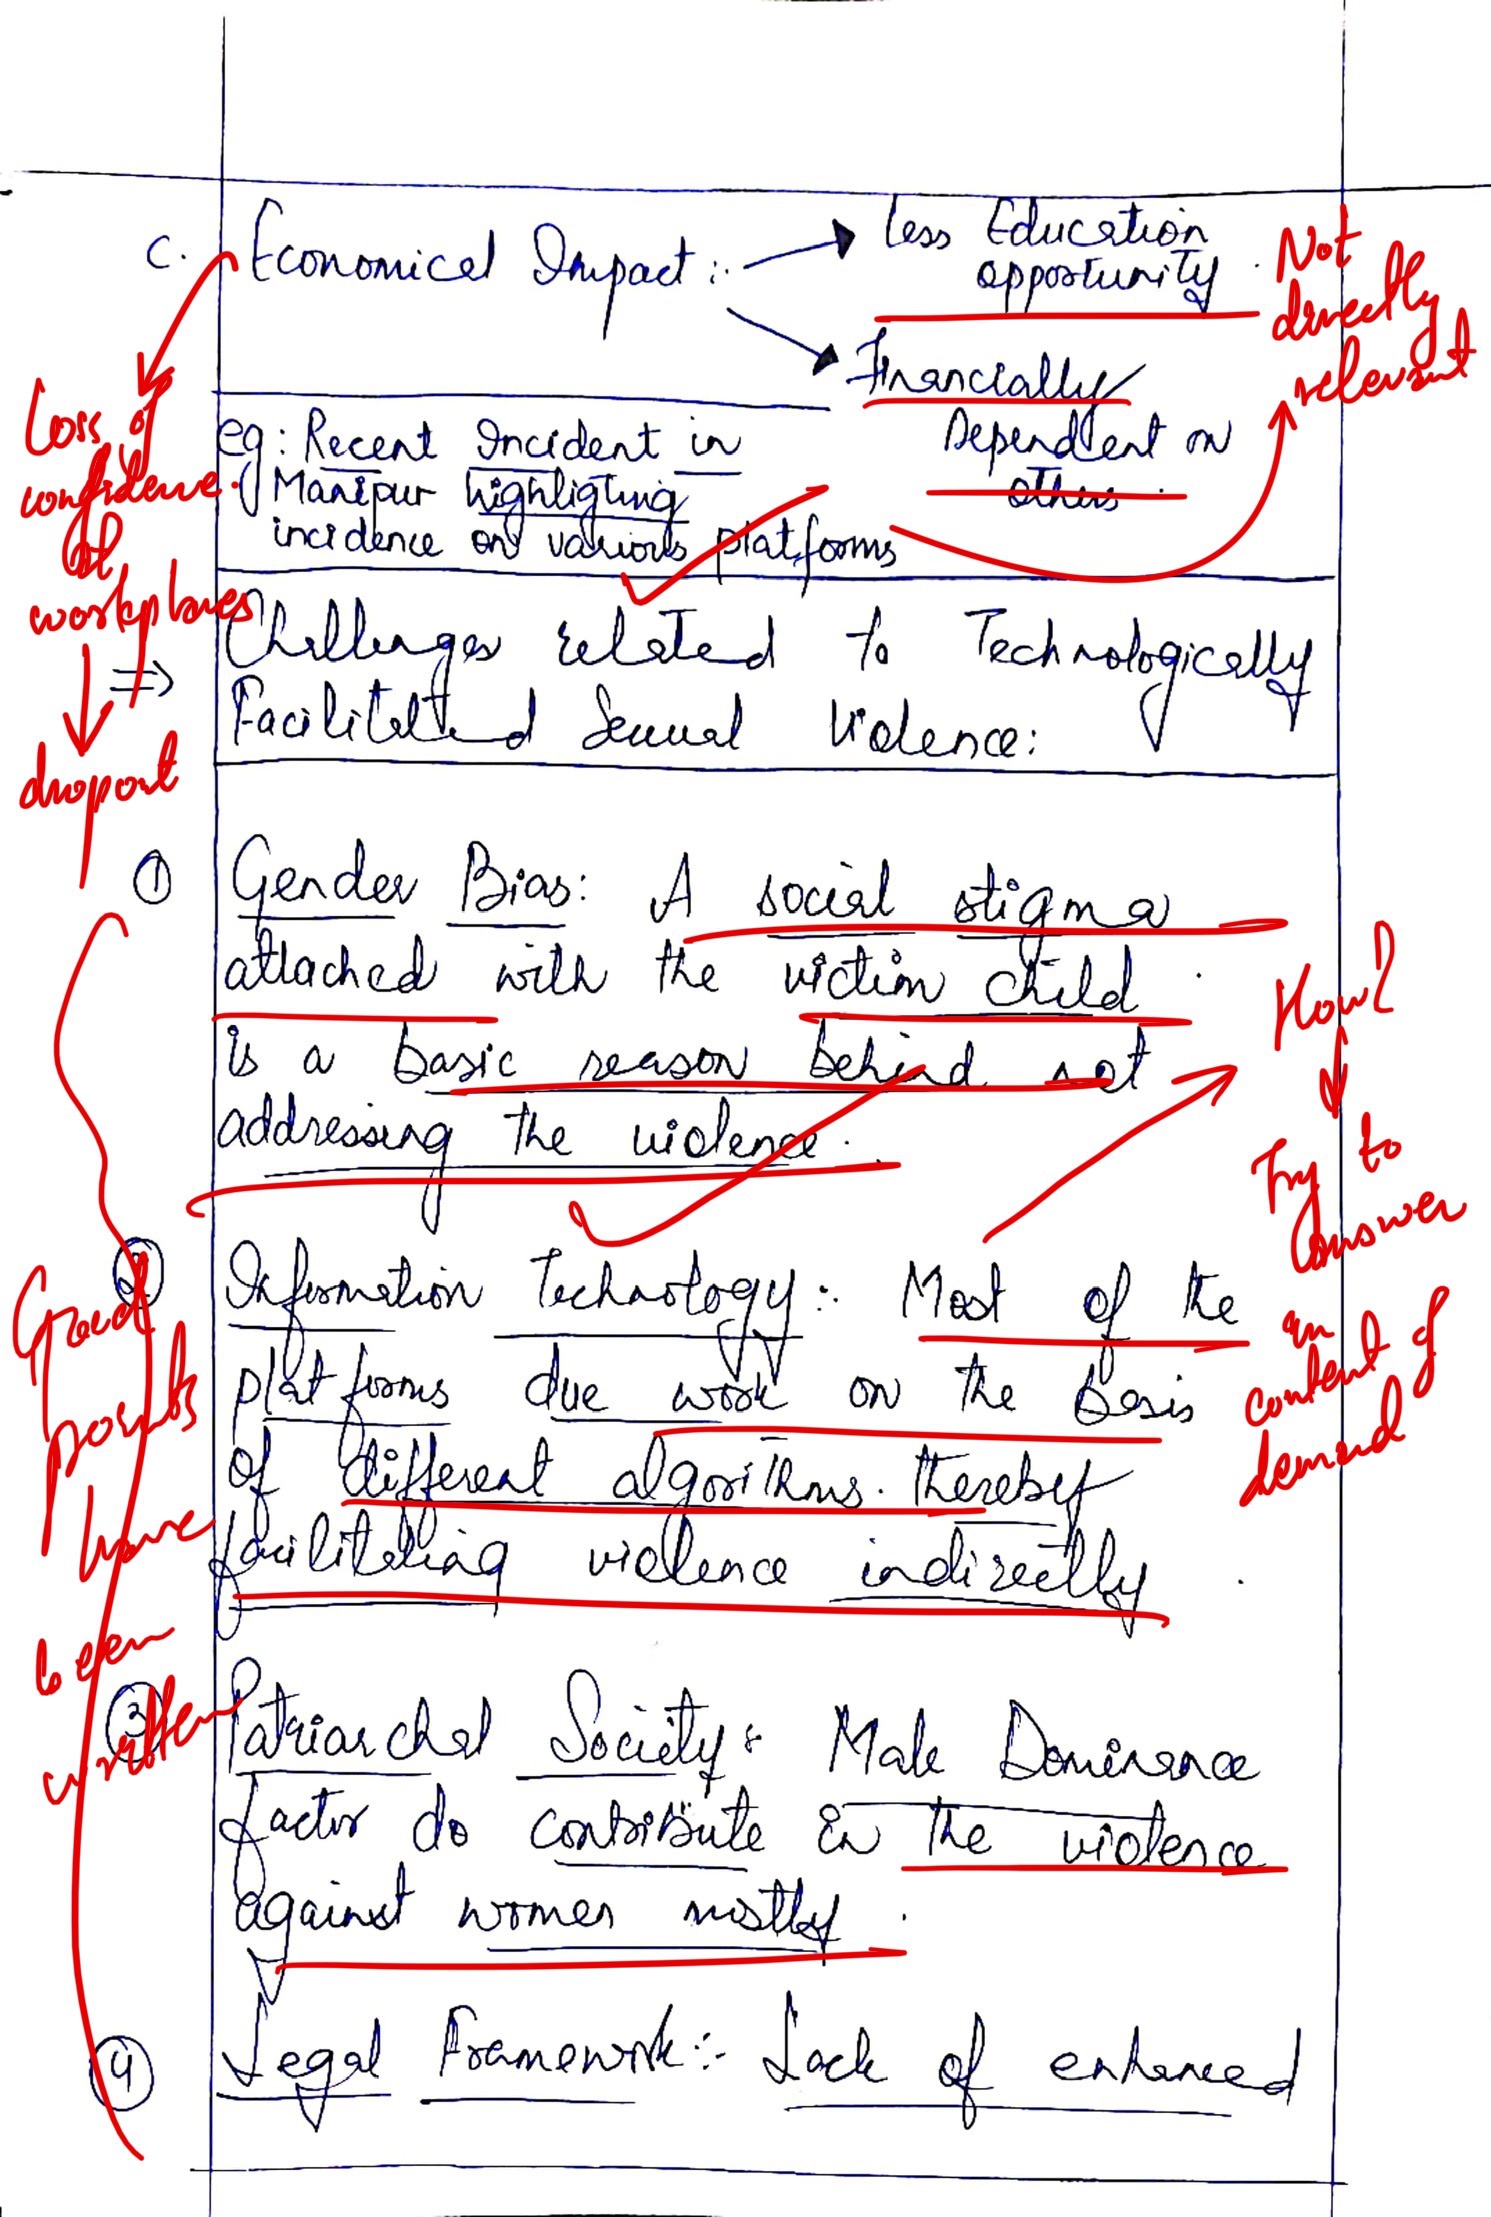 C. Economical Impact :. → Less Education
opportunity
→ Financially
Dependent on
others
Not
directly
relevant
Loss of
confidence
at
workplaces
↓
dropout
eg: Recent Incident in
Manipur highligting
incidence on various platforms
⇒ Challenges related to Technologically
Facilitated Sexual Violence:
① Gender Bias: A social stigma
attached with the victim child
is a basic reason behind not
addressing the violence.
How?
↓
Try to
answer
in
content of
demand
② Information Technology:. Most of the
platforms due work on the basis
of different algorithms. thereby
facilitating violence indirectly
Good
points
have
been
written
③ Patriarchal Society: Male Dominance
factor do contribute in the violence
against women mostly.
④ Legal Framework:- Lack of enhanced